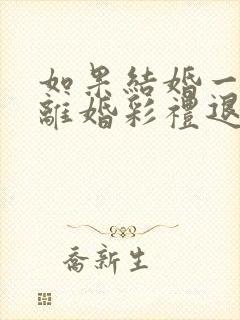 如果結婚一
離婚彩禮退
喬新生